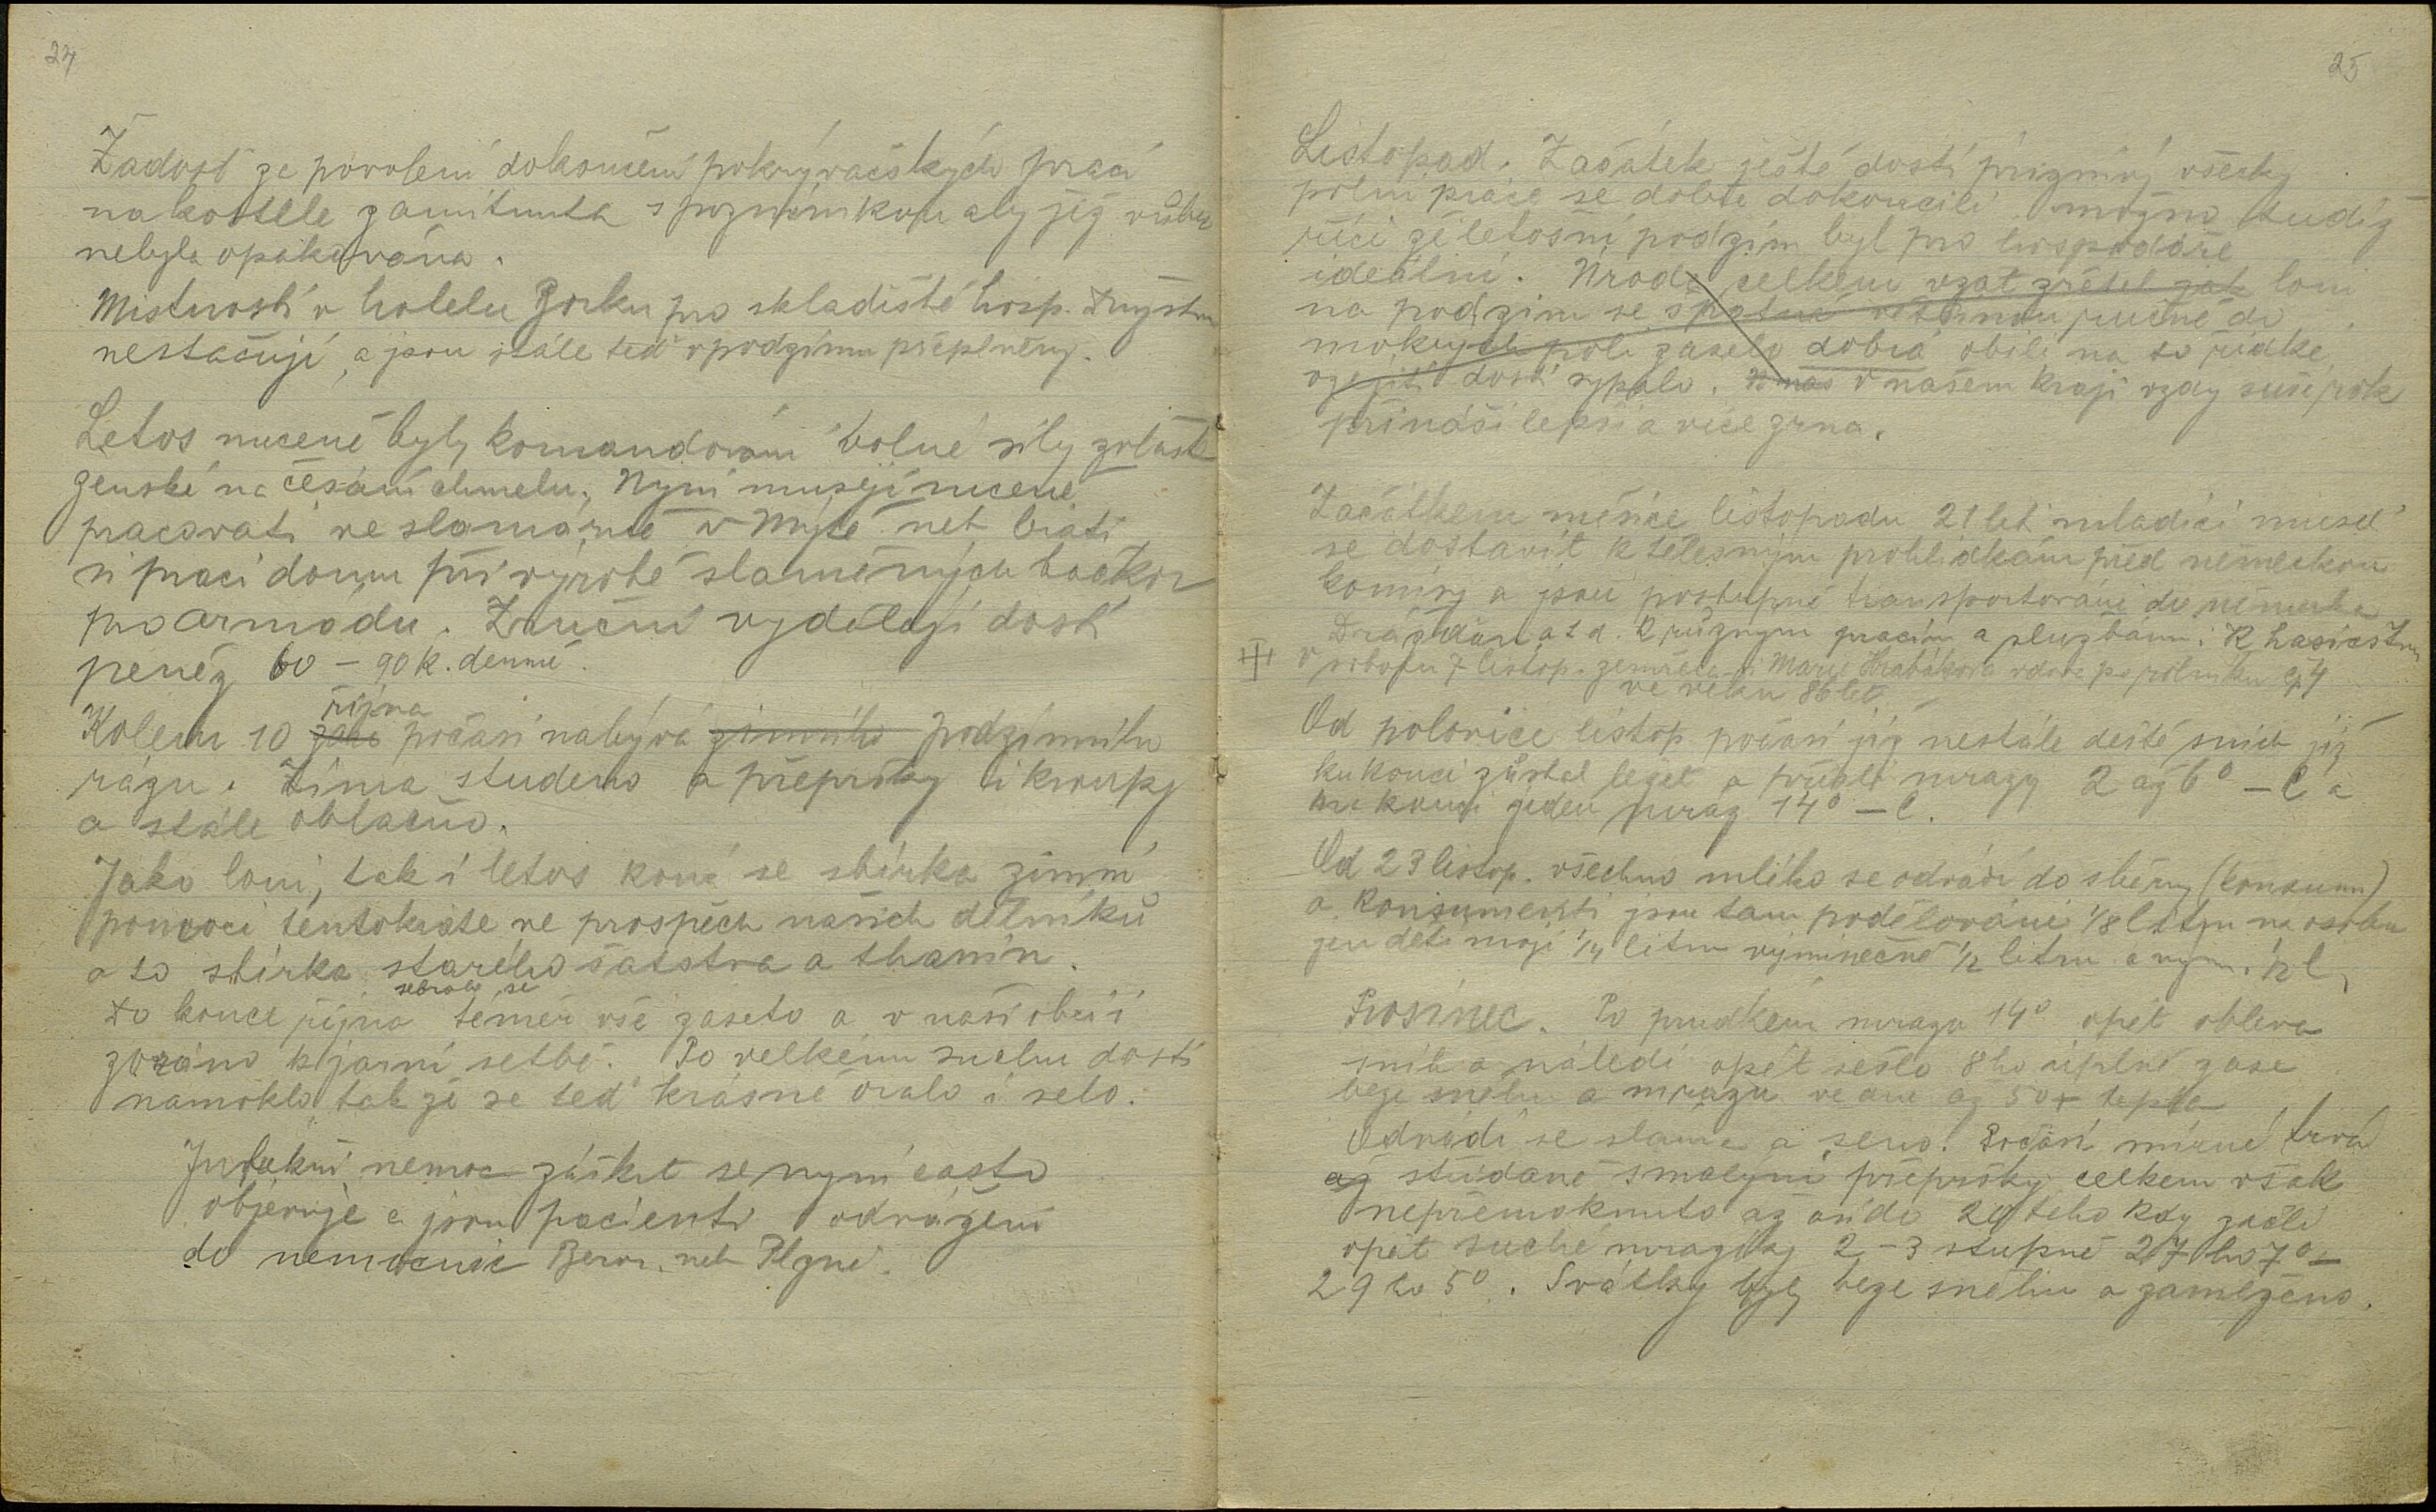 24
Žádost ze povolení dokončení pokrývačských prací
na kostele zamítnuta s poznámkou aby již vůbec
nebyla opakována.
Místnosti v hotelu Borku pro skladiště hosp. družstva
nestačují, a jsou stále teď v podzimu přeplněny.
Letos nuceně byly komandovaní volné síly zvláště
ženské na česání chmelu. Nyní musejí nuceně
pracovati ve slamárně v Mýtě neb bráti
si práci domu při výrobě slaměných bačkor
pro armádu. Zruční vydělají dosti
peněz 60 – 90 K. denně.
října
Kolem 10 září počasí nabývá zimního podzimního
rázu. Zima studeno a přepršky i kroupy
a stále oblačno.
Jako loni, tak i letos koná se sbírka zimní
pomoci tentokráte ve prospěch našich dělníků
a to sbírka starého šatstva a tkanin.
sebralo se
Do konce října téměř vše zaseto a v naší obci i
zoráno k jarní setbě. Po velkém suchu dosti
namoklo, tak že se teď krásně oralo i selo.
Infekční nemoc záškrt se nyní často
objevuje a jsou pacienti odváženi
do nemocnic Beroun. neb Plzně.
25
Listopad. Začátek ještě dosti příznivý všecky
polní práce se dobře dokončili možno tudíž
říci že letošní podzim byl pro hospodáře
ideální. Úroda celkem vzat zřetel jak loni
na podzim se špatně většinou ručně do
mokrých polí zaselo dobrá obilí na to řídké
vzejití dosti sypalo. U nás v našem kraji vždy sušší rok
přináší lepší a více zrna.
Začátkem měsíce listopadu 21 letí mladíci museli
se dostavit k tělesným prohlídkám před německou
komisy a jsou postupně transportováni do německa
Drážďan a t. d. k různým pracím a službám. K hasičstvu
v sobotu 7 listop. zemřela Marie Hrabáková vdova po rolníku čp 4
ve věku 86 let.
Od polovice listop počasí již nestálé deště sních již
ku konci zůstal ležet a přišli mrazy 2 až 6° – C a
ku konci jeden mráz 14° – C.
Od 23 listop. všechno mléko se odvádí do sběrny (konsumu)
a konsumenti jsou tam podělováni 1/8 litru na osobu
jen děti mají 1/4 litru výminečně 1/2 litru a vým. 1/2 l
Prosinec. Po prudkém mrazu 14° opět obleva
sníh a náledí opět sešlo 8ho úplně zase
beze sněhu a mrazu ve dne až 5°+ tepla
Odvádí se sláma a seno! Počasí mírné trvá
až střídavě s malými přepršky celkem však
nepřemoknuto až asi do 20 teho kdy začli
opět suché mrazíky 2–3 stupně 27ho 7° –
29 ho 5°. Svátky byly beze sněhu a zamlženo.